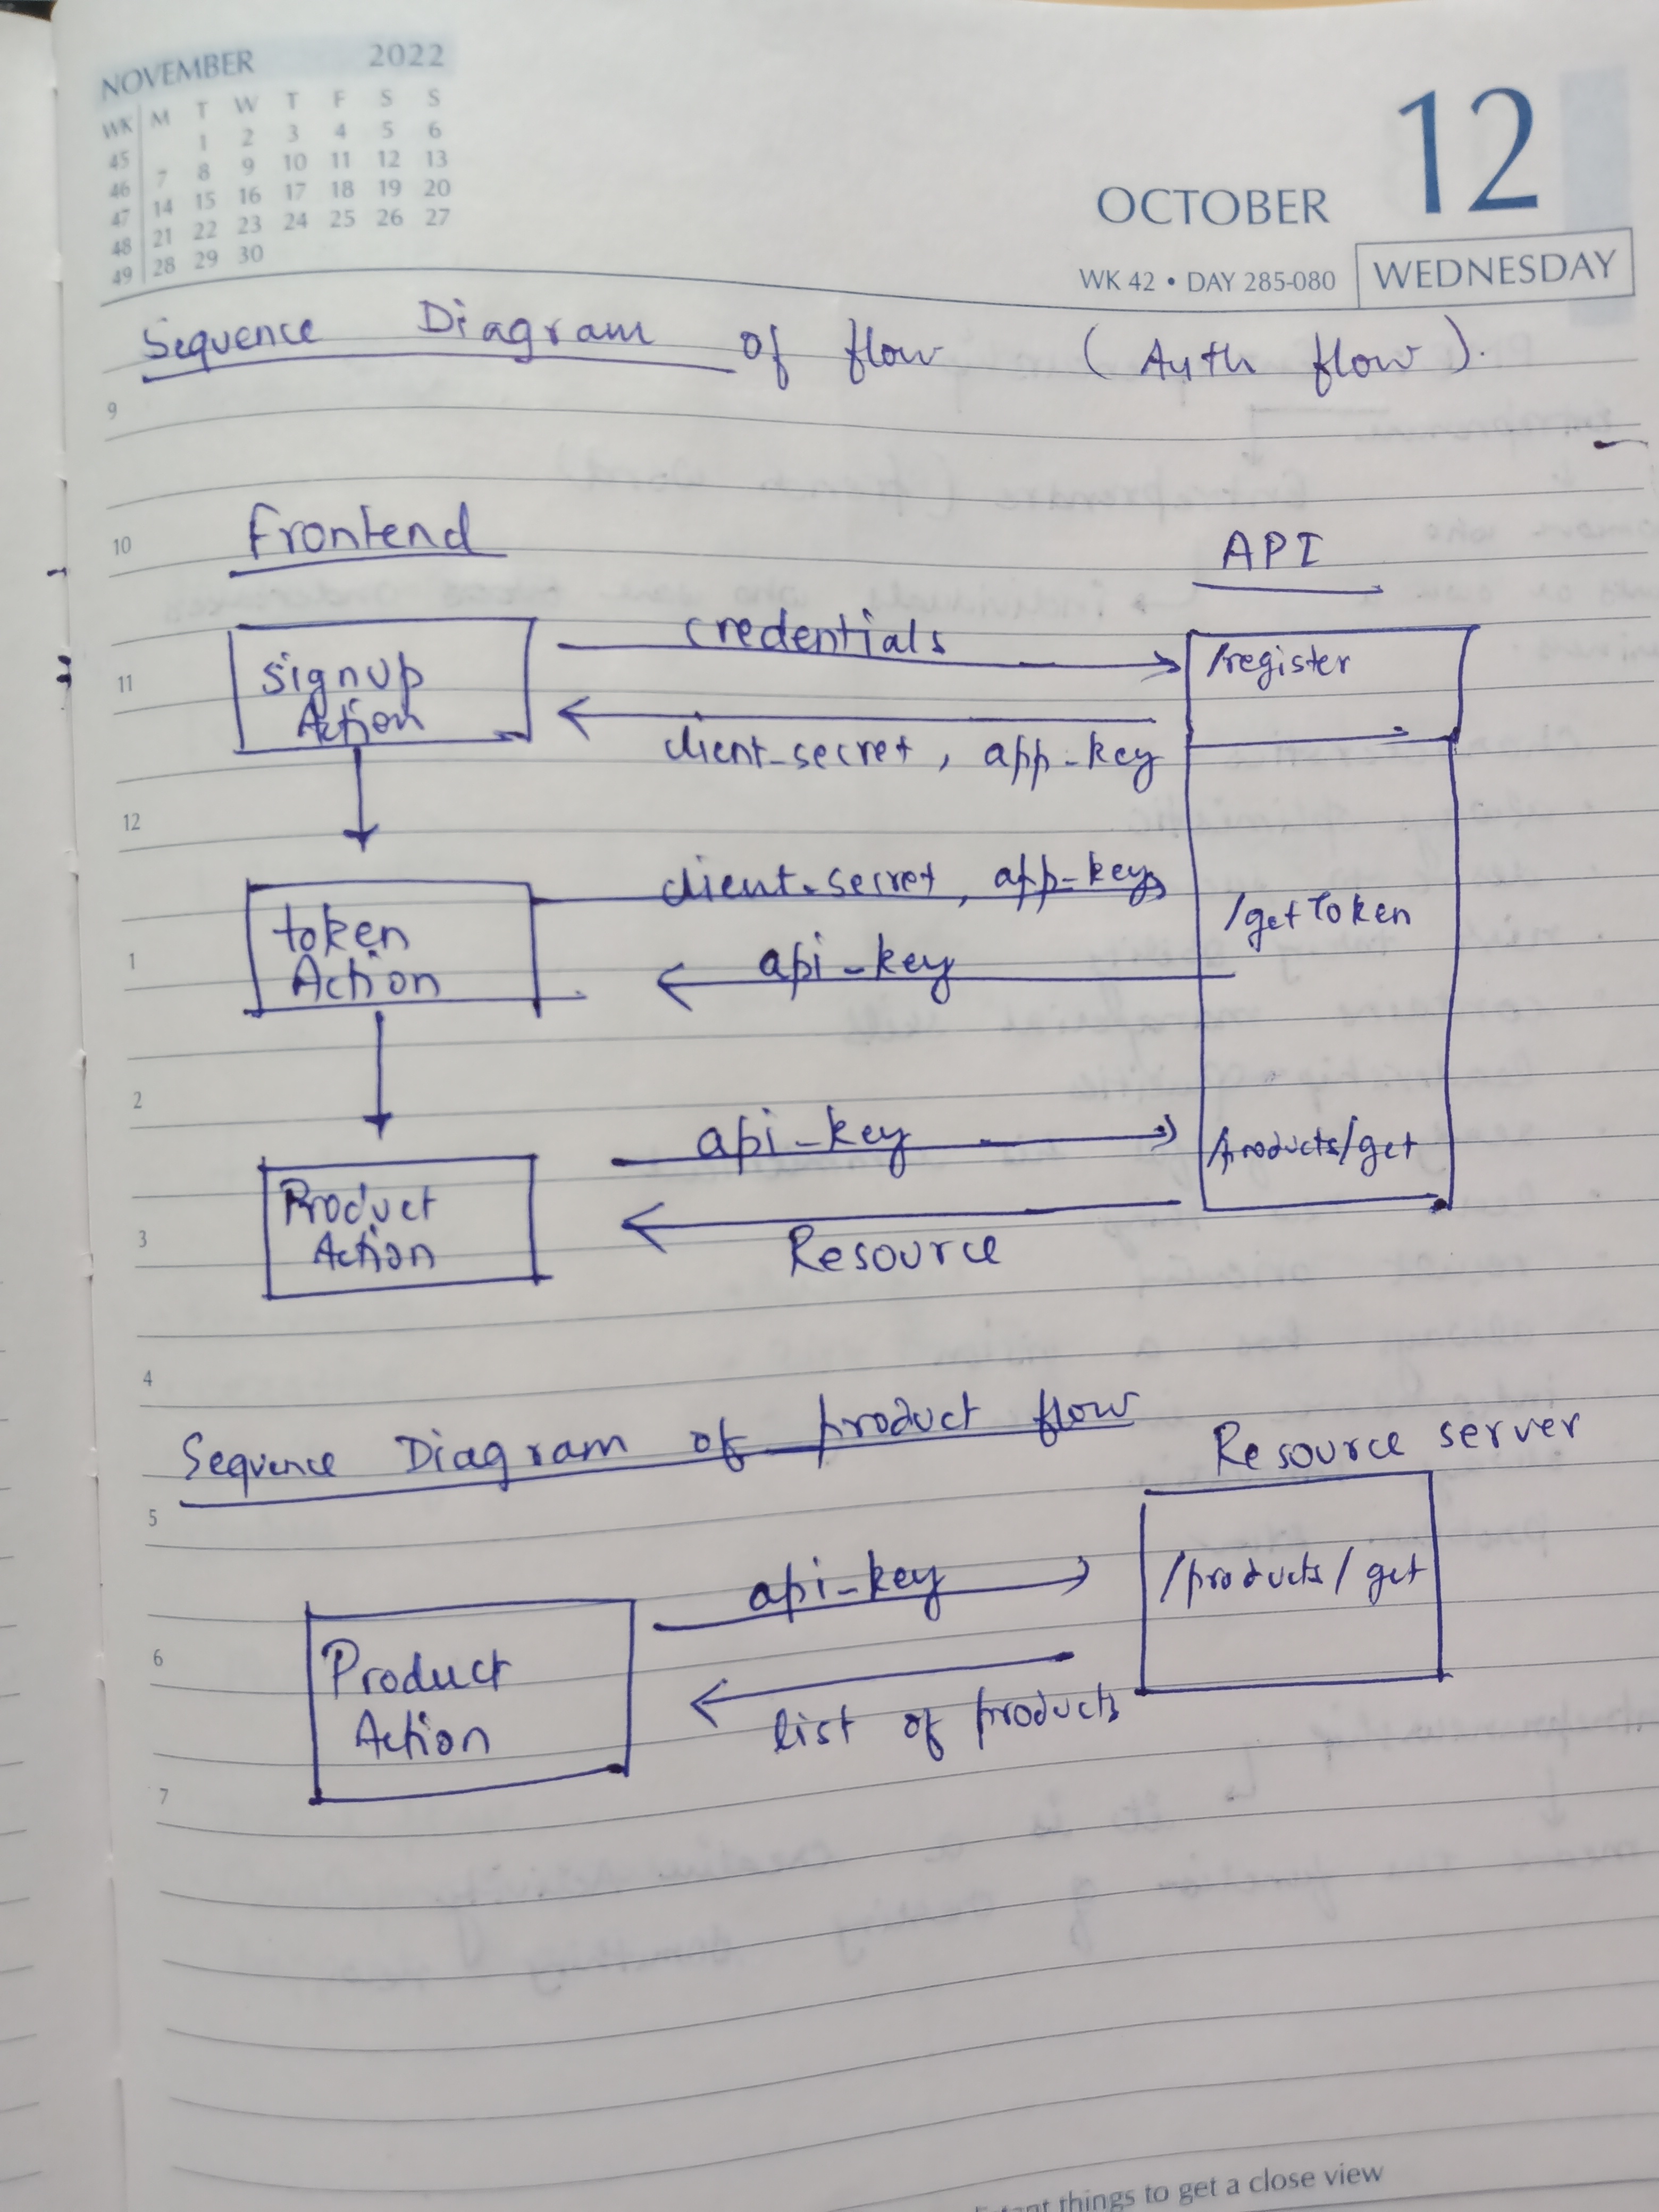 NOVEMBER 2022
WK M T W T F S S
45 1 2 3 4 5 6
46 7 8 9 10 11 12 13
47 14 15 16 17 18 19 20
48 21 22 23 24 25 26 27
49 28 29 30
OCTOBER 12
WK 42 • DAY 285-080 WEDNESDAY
Sequence Diagram of flow (Auth flow).
9
10
Frontend API
credentials
11
Signup
Action
/register
client_secret, app-key
12
client-secret, app-key
token
Action
/getToken
1
api-key
2
api-key
/products/get
Product
Action
3
Resource
4
Sequence Diagram of product flow
Resource server
5
api-key
/products/get
6
Product
Action
list of products
7
things to get a close view